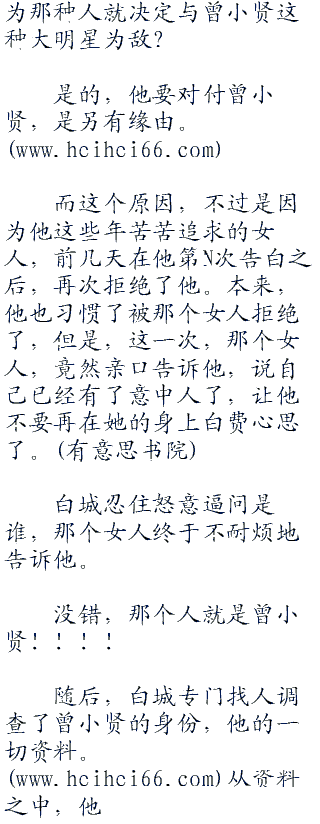 为那种人就决定与曾小贤这
种大明星为敌？
是的，他要对付曾小
贤，是另有缘由。
(www.hcihci66.com)
而这个原因，不过是因
为他这些年苦苦追求的女
人，前几天在他第N次告白之
后，再次拒绝了他。本来，
他也习惯了被那个女人拒绝
了，但是，这一次，那个女
人，竟然亲口告诉他，说自
己已经有了意中人了，让他
不要再在她的身上白费心思
了。(有意思书院)
白城忍住怒意逼问是
谁，那个女人终于不耐烦地
告诉他。
没错，那个人就是曾小
贤！！！！
随后，白城专门找人调
查了曾小贤的身份，他的一
切资料。
(www.hcihci66.com)从资料
之中，他